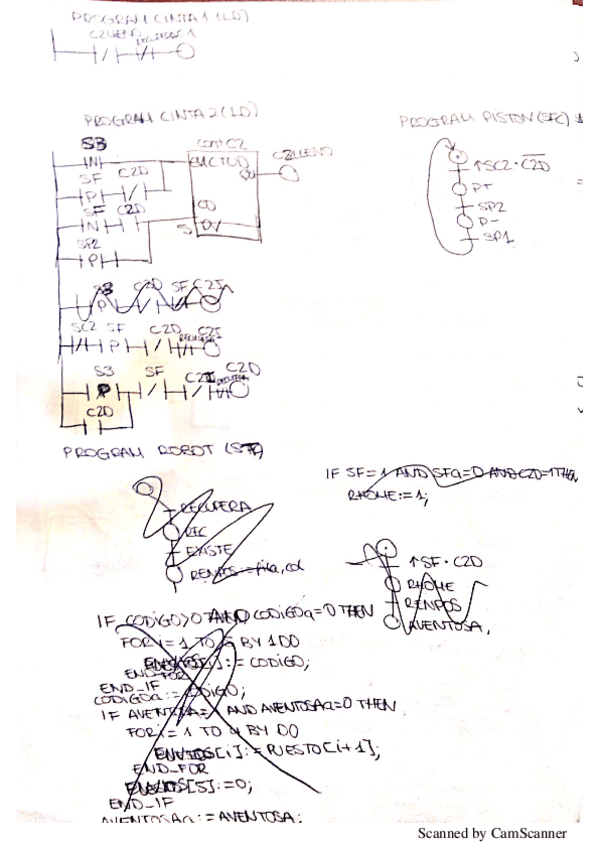 PROGRAM CINTA 1 (LD)
C2LLENO
PROGRAM CINTA 2 (LD)
S3
N
SF C2D
P
SF C2D
N
SF2
P
CONTC2
C2LLENO
CD
5
PROGRAM PISTON (SFC)
↑SC2·C2D
P+
SP2
P-
SP1
S3 C2D SF C2I
P
SC2 SF C2D C2I
P
S3 SF C2I C2D
P
C2D
PROGRAM ROBOT (ST)
RECUPERA
REC
EXISTE
RENPOS fila, col
IF SF=1 AND SFa=0 AND C2D=1 THEN
RHOME:=1;
↑SF·C2D
RHOME
RENPOS
AVENTOSA
IF CODIGO>0 AND CODIGOa=0 THEN
FOR i=1 TO 5 BY 1 DO
[i]:=CODIGO;
END_FOR
END_IF
CODIGOa:=CODIGO;
IF AVENTOSA= AND AVENTOSAa=0 THEN
FOR i=1 TO 4 BY DO
[i]:=PUESTO[i+1];
END_FOR
[5]:=0;
END_IF
AVENTOSAa:=AVENTOSA;
Scanned by CamScanner